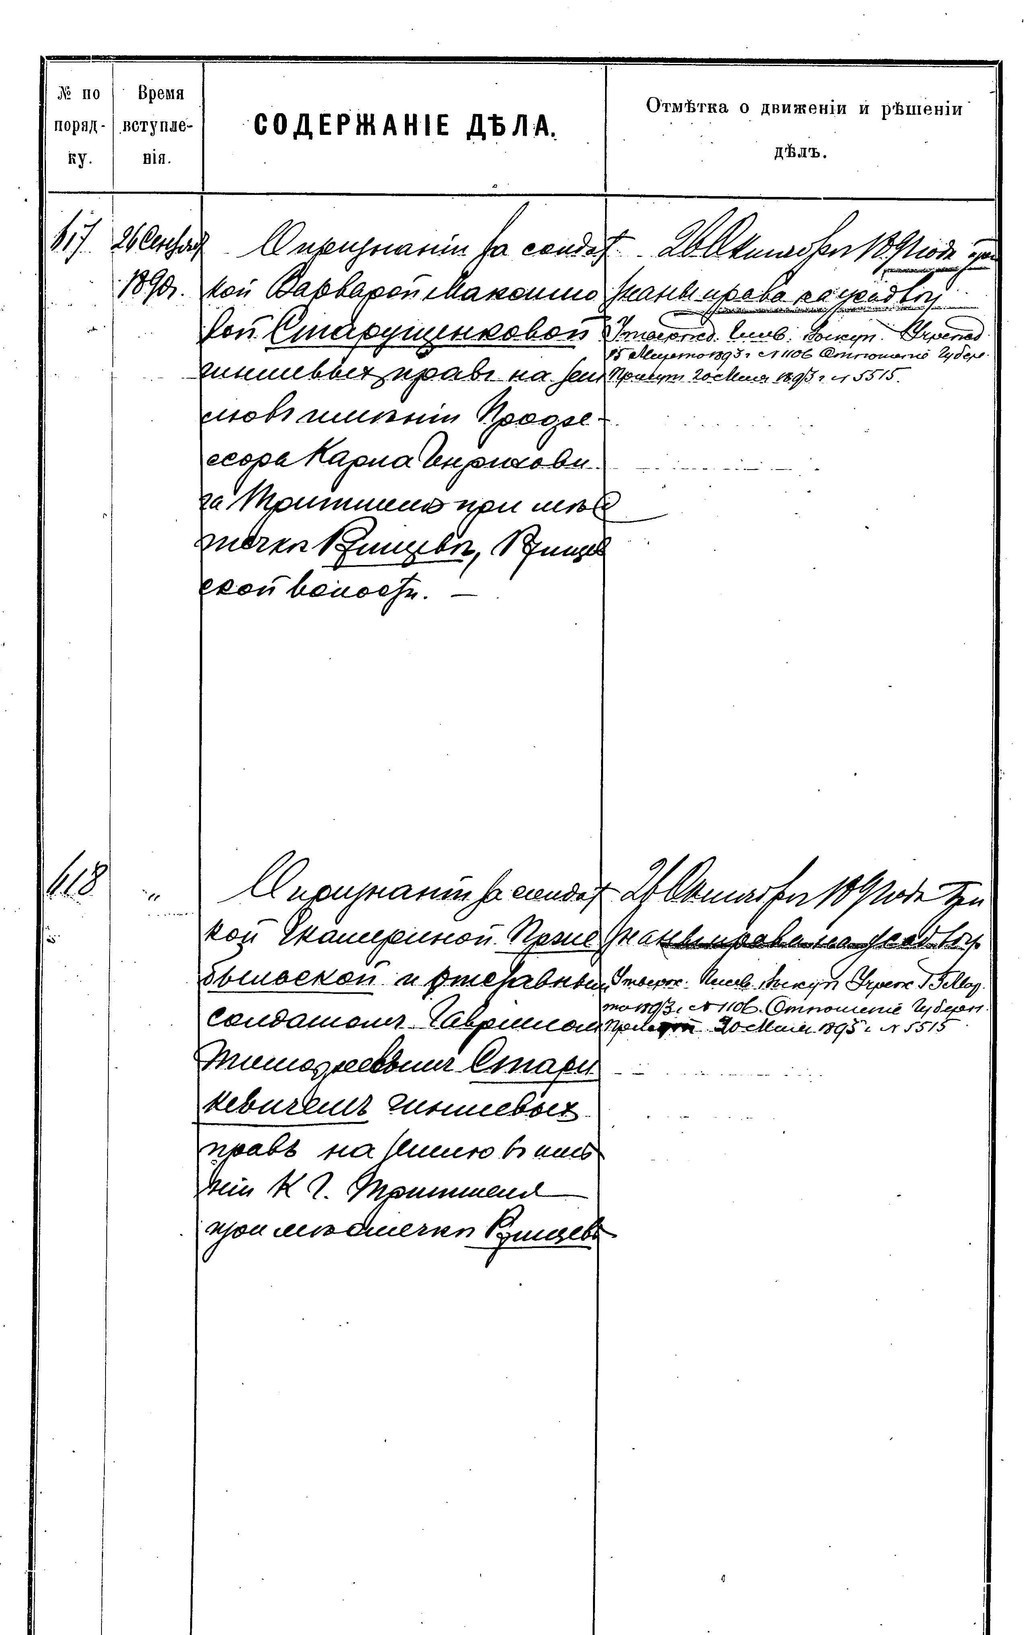 № по поряд- ку.
Время вступле- нія.
СОДЕРЖАНІЕ ДѢЛА.
Отмѣтка о движеніи и рѣшеніи дѣлъ.
617
26 Сентяб
1890 г.
О признаніи за солдат
кой Варварой Максимо
вой Старущенковой
чиншевыхъ правъ на зем
лю въ имѣніи Профе-
ссора Карла Генрихови
ча Тритшеля при мѣс
течкѣ Ржищевѣ, Ржищев
ской волости. —
26 Октября 1891 года при
знаны права на усадьбу
Утвержд. Кіев. Выкуп. Учрежд
15 Марта 1893 г. № 1106 Отношеніе Губерн.
Присут. 20 Мая 1893 г. № 5515.
618
"
О признаніи за солдат
кой Екатериной Прже
быльской и отставным
солдатомъ Гавріилом
Тимофеевымъ Стари
кевичемъ чиншевыхъ
правъ на землю въ имѣ
ніи К. Г. Тритшеля
при мѣстечкѣ Ржищевѣ
26 Октября 1891 года при
знаны права на усадьбу
Утверж. Кіев. Выкуп. Учреж. 15 Мар
та 1893 г. № 1106. Отношеніе Губерн.
Присут 20 Мая 1893 г. № 5515